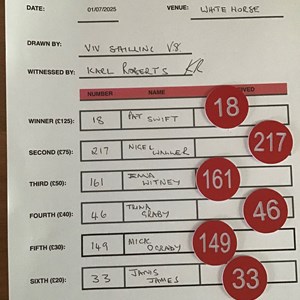 DATE: 01/07/2025 VENUE: WHITE HORSE
DRAWN BY: VIV
WITNESSED BY: KARL ROBERTS KR
NUMBER NAME
WINNER (£125): 18 PAT SWIFT 18
SECOND (£75): 217 NIGEL WALLER 217
THIRD (£50): 161 WITNEY 161
FOURTH (£40): 46 TRINA GRABY 46
FIFTH (£30): 149 MICK O GRADY 149
SIXTH (£20): 33 JANIS JAMES 33